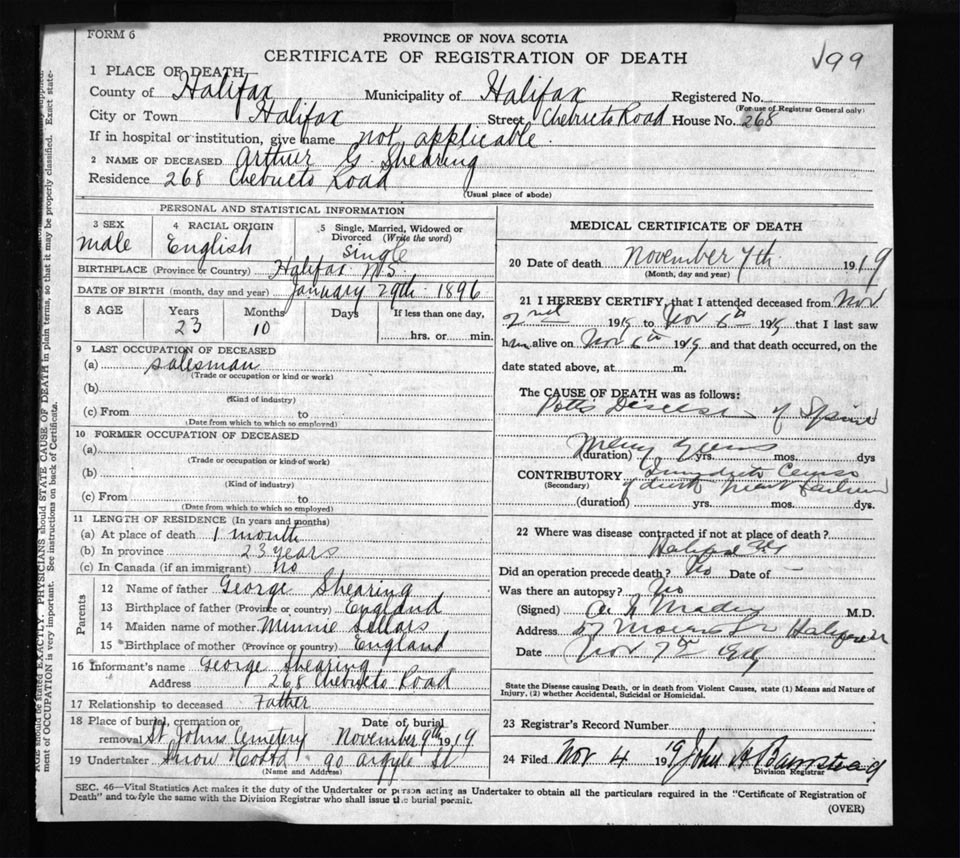 FORM 6
PROVINCE OF NOVA SCOTIA
CERTIFICATE OF REGISTRATION OF DEATH
199
1 PLACE OF DEATH
County of Halifax Municipality of Halifax Registered No.
(For use of Registrar General only)
City or Town Halifax Street Chebucto Road House No. 268
If in hospital or institution, give name not applicable.
2 NAME OF DECEASED Arthur G. Shearing
Residence 268 Chebucto Road
(Usual place of abode)
PERSONAL AND STATISTICAL INFORMATION
3 SEX 4 RACIAL ORIGIN 5 Single, Married, Widowed or Divorced (Write the word)
male English single
BIRTHPLACE (Province or Country) Halifax N.S.
DATE OF BIRTH (month, day and year) January 29th 1896
8 AGE Years Months Days If less than one day,
23 10 hrs. or min.
9 LAST OCCUPATION OF DECEASED
(a) salesman
(Trade or occupation or kind or work)
(b)
(Kind of industry)
(c) From to
(Date from which to which so employed)
10 FORMER OCCUPATION OF DECEASED
(a)
(Trade or occupation or kind or work)
(b)
(Kind of industry)
(c) From to
(Date from which to which so employed)
11 LENGTH OF RESIDENCE (In years and months)
(a) At place of death 1 month
(b) In province 23 years
(c) In Canada (if an immigrant) no
Parents
12 Name of father George Shearing
13 Birthplace of father (Province or country) England
14 Maiden name of mother Minnie Sellars
15 Birthplace of mother (Province or country) England
16 Informant's name George Shearing
Address 268 Chebucto Road
17 Relationship to deceased Father
18 Place of burial, cremation or Date of burial
removal St Johns Cemetery November 9th 1919
19 Undertaker Snow 90 Argyle St
(Name and Address)
MEDICAL CERTIFICATE OF DEATH
20 Date of death November 7th 1919
(Month, day and year)
21 I HEREBY CERTIFY, that I attended deceased from Nov
2nd 1919 to Nov 6th 1919 that I last saw
him alive on Nov 6th 1919 and that death occurred, on the
date stated above, at m.
The CAUSE OF DEATH was as follows:
Potts Disease of Spine
Many years
(duration) yrs. mos. dys
CONTRIBUTORY Immediate Cause
(Secondary) of death heart failure
(duration) yrs. mos. dys.
22 Where was disease contracted if not at place of death?
Halifax
Did an operation precede death? No Date of —
Was there an autopsy? No
(Signed) M.D.
Address 57 Morris St Halifax
Date Nov 7th 1919
State the Disease causing Death, or in death from Violent Causes, state (1) Means and Nature of
Injury, (2) whether Accidental, Suicidal or Homicidal.
23 Registrar's Record Number
24 Filed Nov 4 1919 John H Barnstead
Division Registrar
SEC. 46—Vital Statistics Act makes it the duty of the Undertaker or person acting as Undertaker to obtain all the particulars required in the "Certificate of Registration of
Death" and to fyle the same with the Division Registrar who shall issue the burial permit.
(OVER)
stated EXACTLY. PHYSICIANS should STATE CAUSE OF DEATH in plain terms, so that it may be properly classified. Exact state-
ment of OCCUPATION is very important. See instructions on back of Certificate.